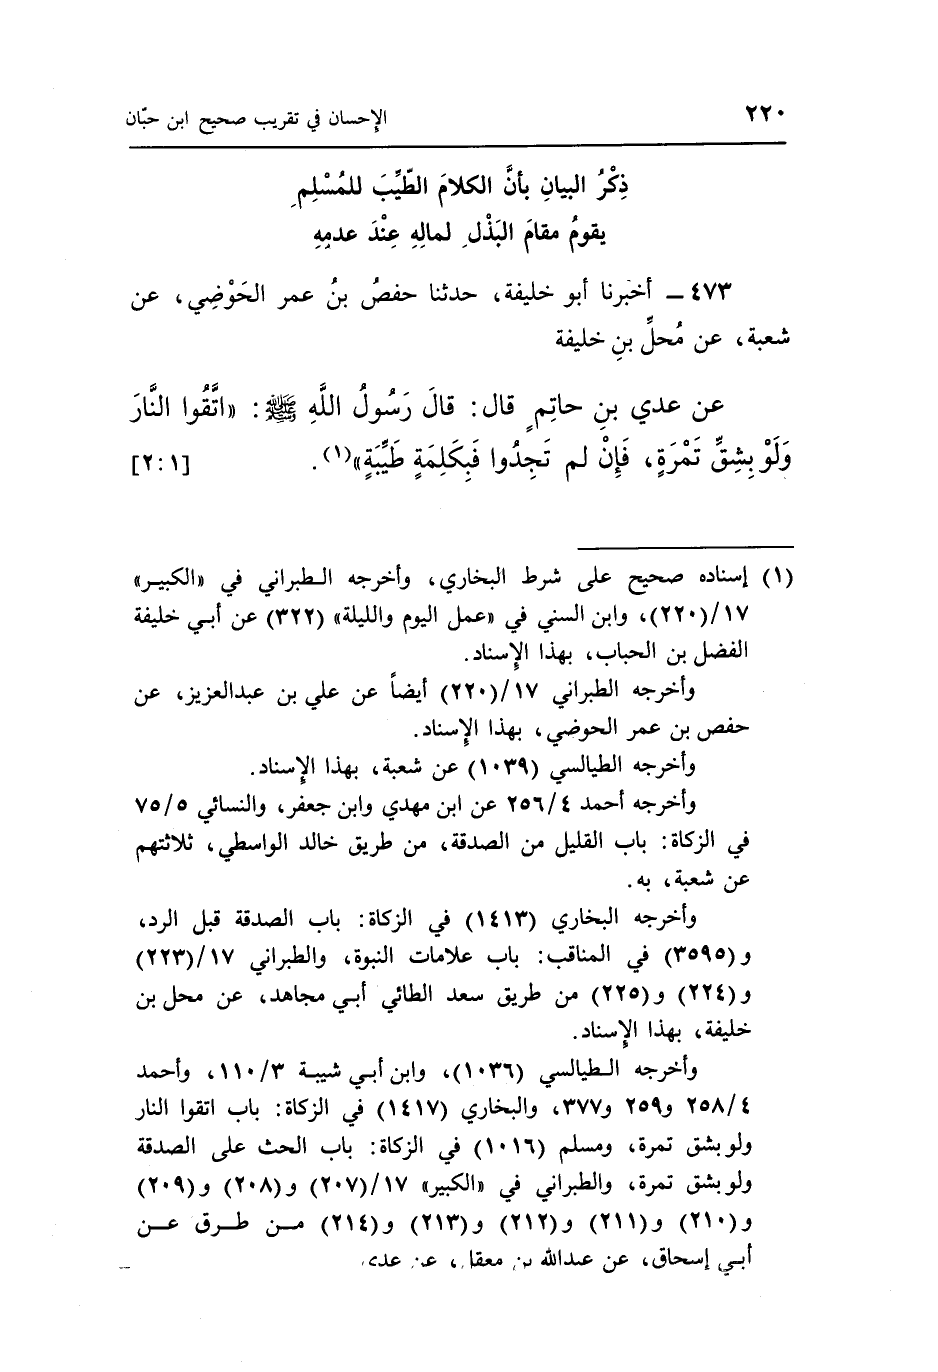 ٢٢٠ الإحسان في تقريب صحيح ابن حبّان
ذِكْرُ البيانِ بأنَّ الكلامَ الطَّيِّبَ للمُسْلِمِ
يقومُ مقامَ البَذْلِ لمالِهِ عِنْدَ عدمِهِ
٤٧٣ ـ أخبَرنا أبو خليفة، حدثنا حفصُ بنُ عمر الحَوْضِي، عن
شعبة، عن مُحلِّ بنِ خليفة
عن عدي بنِ حاتِمٍ قال: قالَ رَسُولُ اللَّهِ ﷺ: «اتَّقُوا النَّارَ
وَلَوْ بِشِقِّ تَمْرَةٍ، فَإِنْ لم تَجِدُوا فَبِكَلِمَةٍ طَيِّبَةٍ»(١). [٢:١]
(١) إسناده صحيح على شرط البخاري، وأخرجه الطبراني في «الكبير»
١٧/(٢٢٠)، وابن السني في «عمل اليوم والليلة» (٣٢٢) عن أبي خليفة
الفضل بن الحباب، بهذا الإسناد.
وأخرجه الطبراني ١٧/(٢٢٠) أيضاً عن علي بن عبدالعزيز، عن
حفص بن عمر الحوضي، بهذا الإسناد.
وأخرجه الطيالسي (١٠٣٩) عن شعبة، بهذا الإسناد.
وأخرجه أحمد ٢٥٦/٤ عن ابن مهدي وابن جعفر، والنسائي ٧٥/٥
في الزكاة: باب القليل من الصدقة، من طريق خالد الواسطي، ثلاثتهم
عن شعبة، به.
وأخرجه البخاري (١٤١٣) في الزكاة: باب الصدقة قبل الرد،
و(٣٥٩٥) في المناقب: باب علامات النبوة، والطبراني ١٧/(٢٢٣)
و(٢٢٤) و(٢٢٥) من طريق سعد الطائي أبي مجاهد، عن محل بن
خليفة، بهذا الإسناد.
وأخرجه الطيالسي (١٠٣٦)، وابن أبي شيبة ١١٠/٣، وأحمد
٢٥٨/٤ و٢٥٩ و٣٧٧، والبخاري (١٤١٧) في الزكاة: باب اتقوا النار
ولو بشق تمرة، ومسلم (١٠١٦) في الزكاة: باب الحث على الصدقة
ولو بشق تمرة، والطبراني في «الكبير» ١٧/(٢٠٧) و(٢٠٨) و(٢٠٩)
و(٢١٠) و(٢١١) و(٢١٢) و(٢١٣) و(٢١٤) من طرق عن
أبي إسحاق، عن عبدالله بن معقل، عن عدي، =